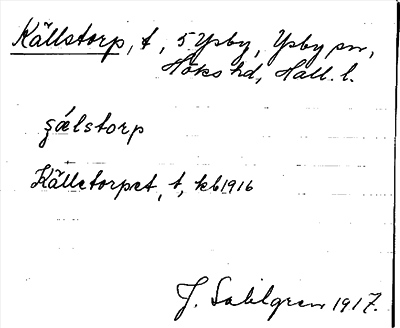 Källstorp, t, 5 Ysby, Ysby sn,
Höks hd, Hall. l.
şǽlstorp
Källetorpet, t, kb 1916
J. Sahlgren 1917.